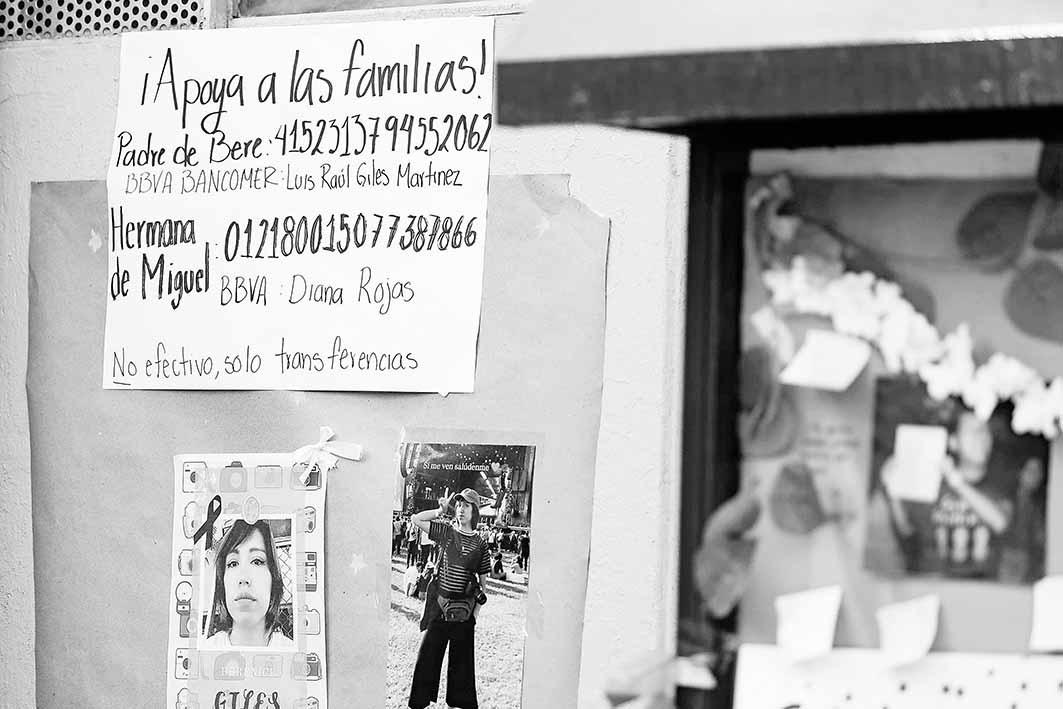 ¡Apoya a las familias!
Padre de Bere: 4152313794552062
BBVA BANCOMER: Luis Raúl Giles Martínez
Hermana
de Miguel: 012180015077387866
BBVA: Diana Rojas
No efectivo, solo transferencias
Si me ven salúdenme
BERENICE
GILES